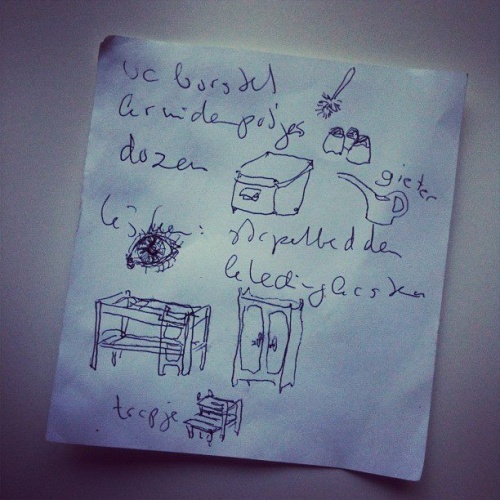 wc borstel
kruidenpotjes
dozen
gieter
kijken: stapelbedden
kledingkasten
trapje